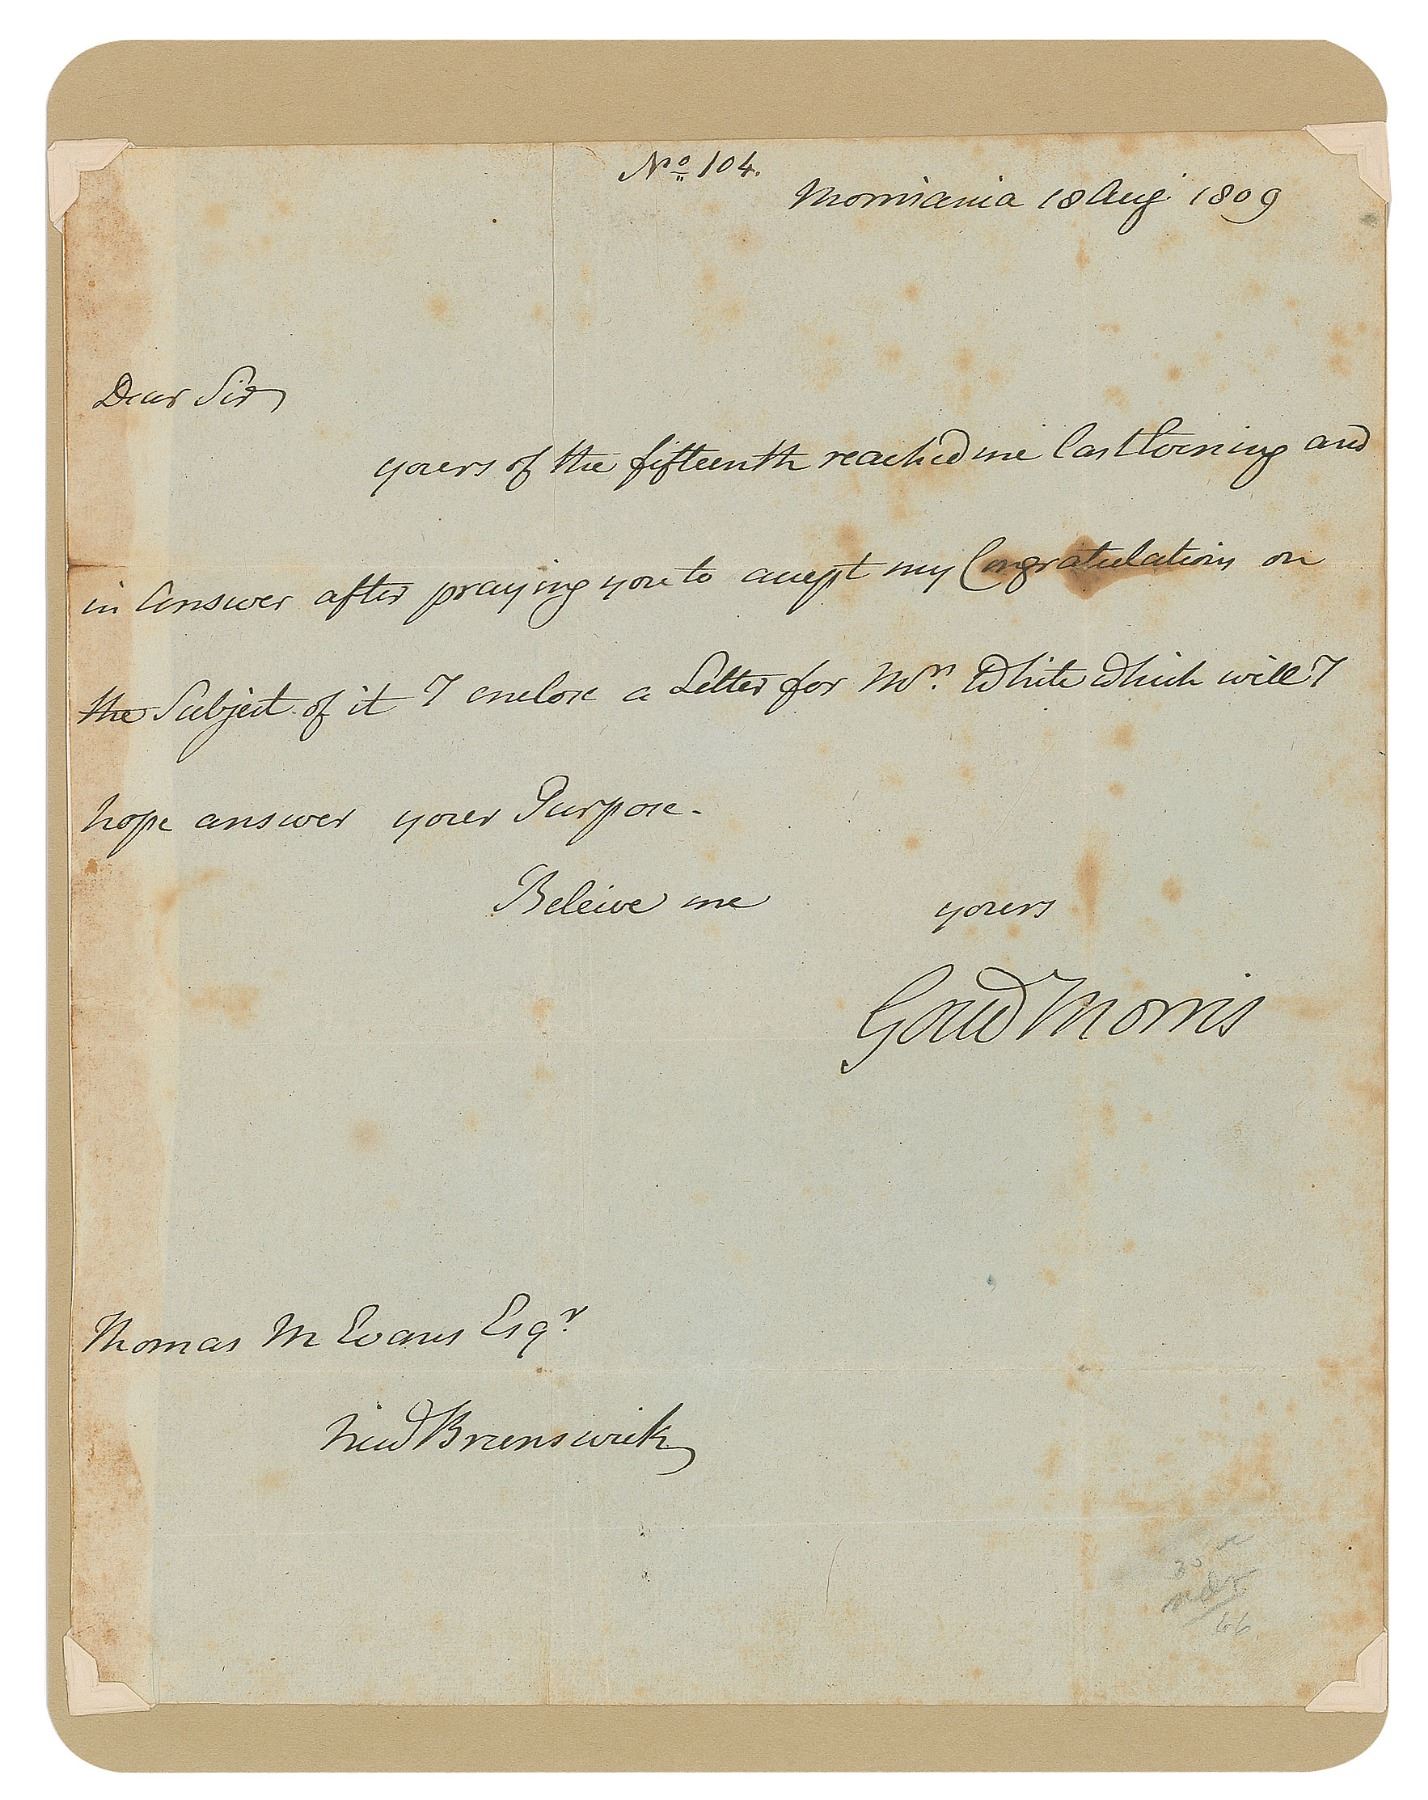 No 104.
Morrisania 18 Aug. 1809
Dear Sir
yours of the fifteenth reached me last Evening and
in Answer after praying you to accept my Congratulations on
the Subject of it I enclose a Letter for Mrs. White which will I
hope answer your Purpose.
Beleive me yours
Gouv Morris
Thomas M Evans Esqr.
New Brunswick
30
66